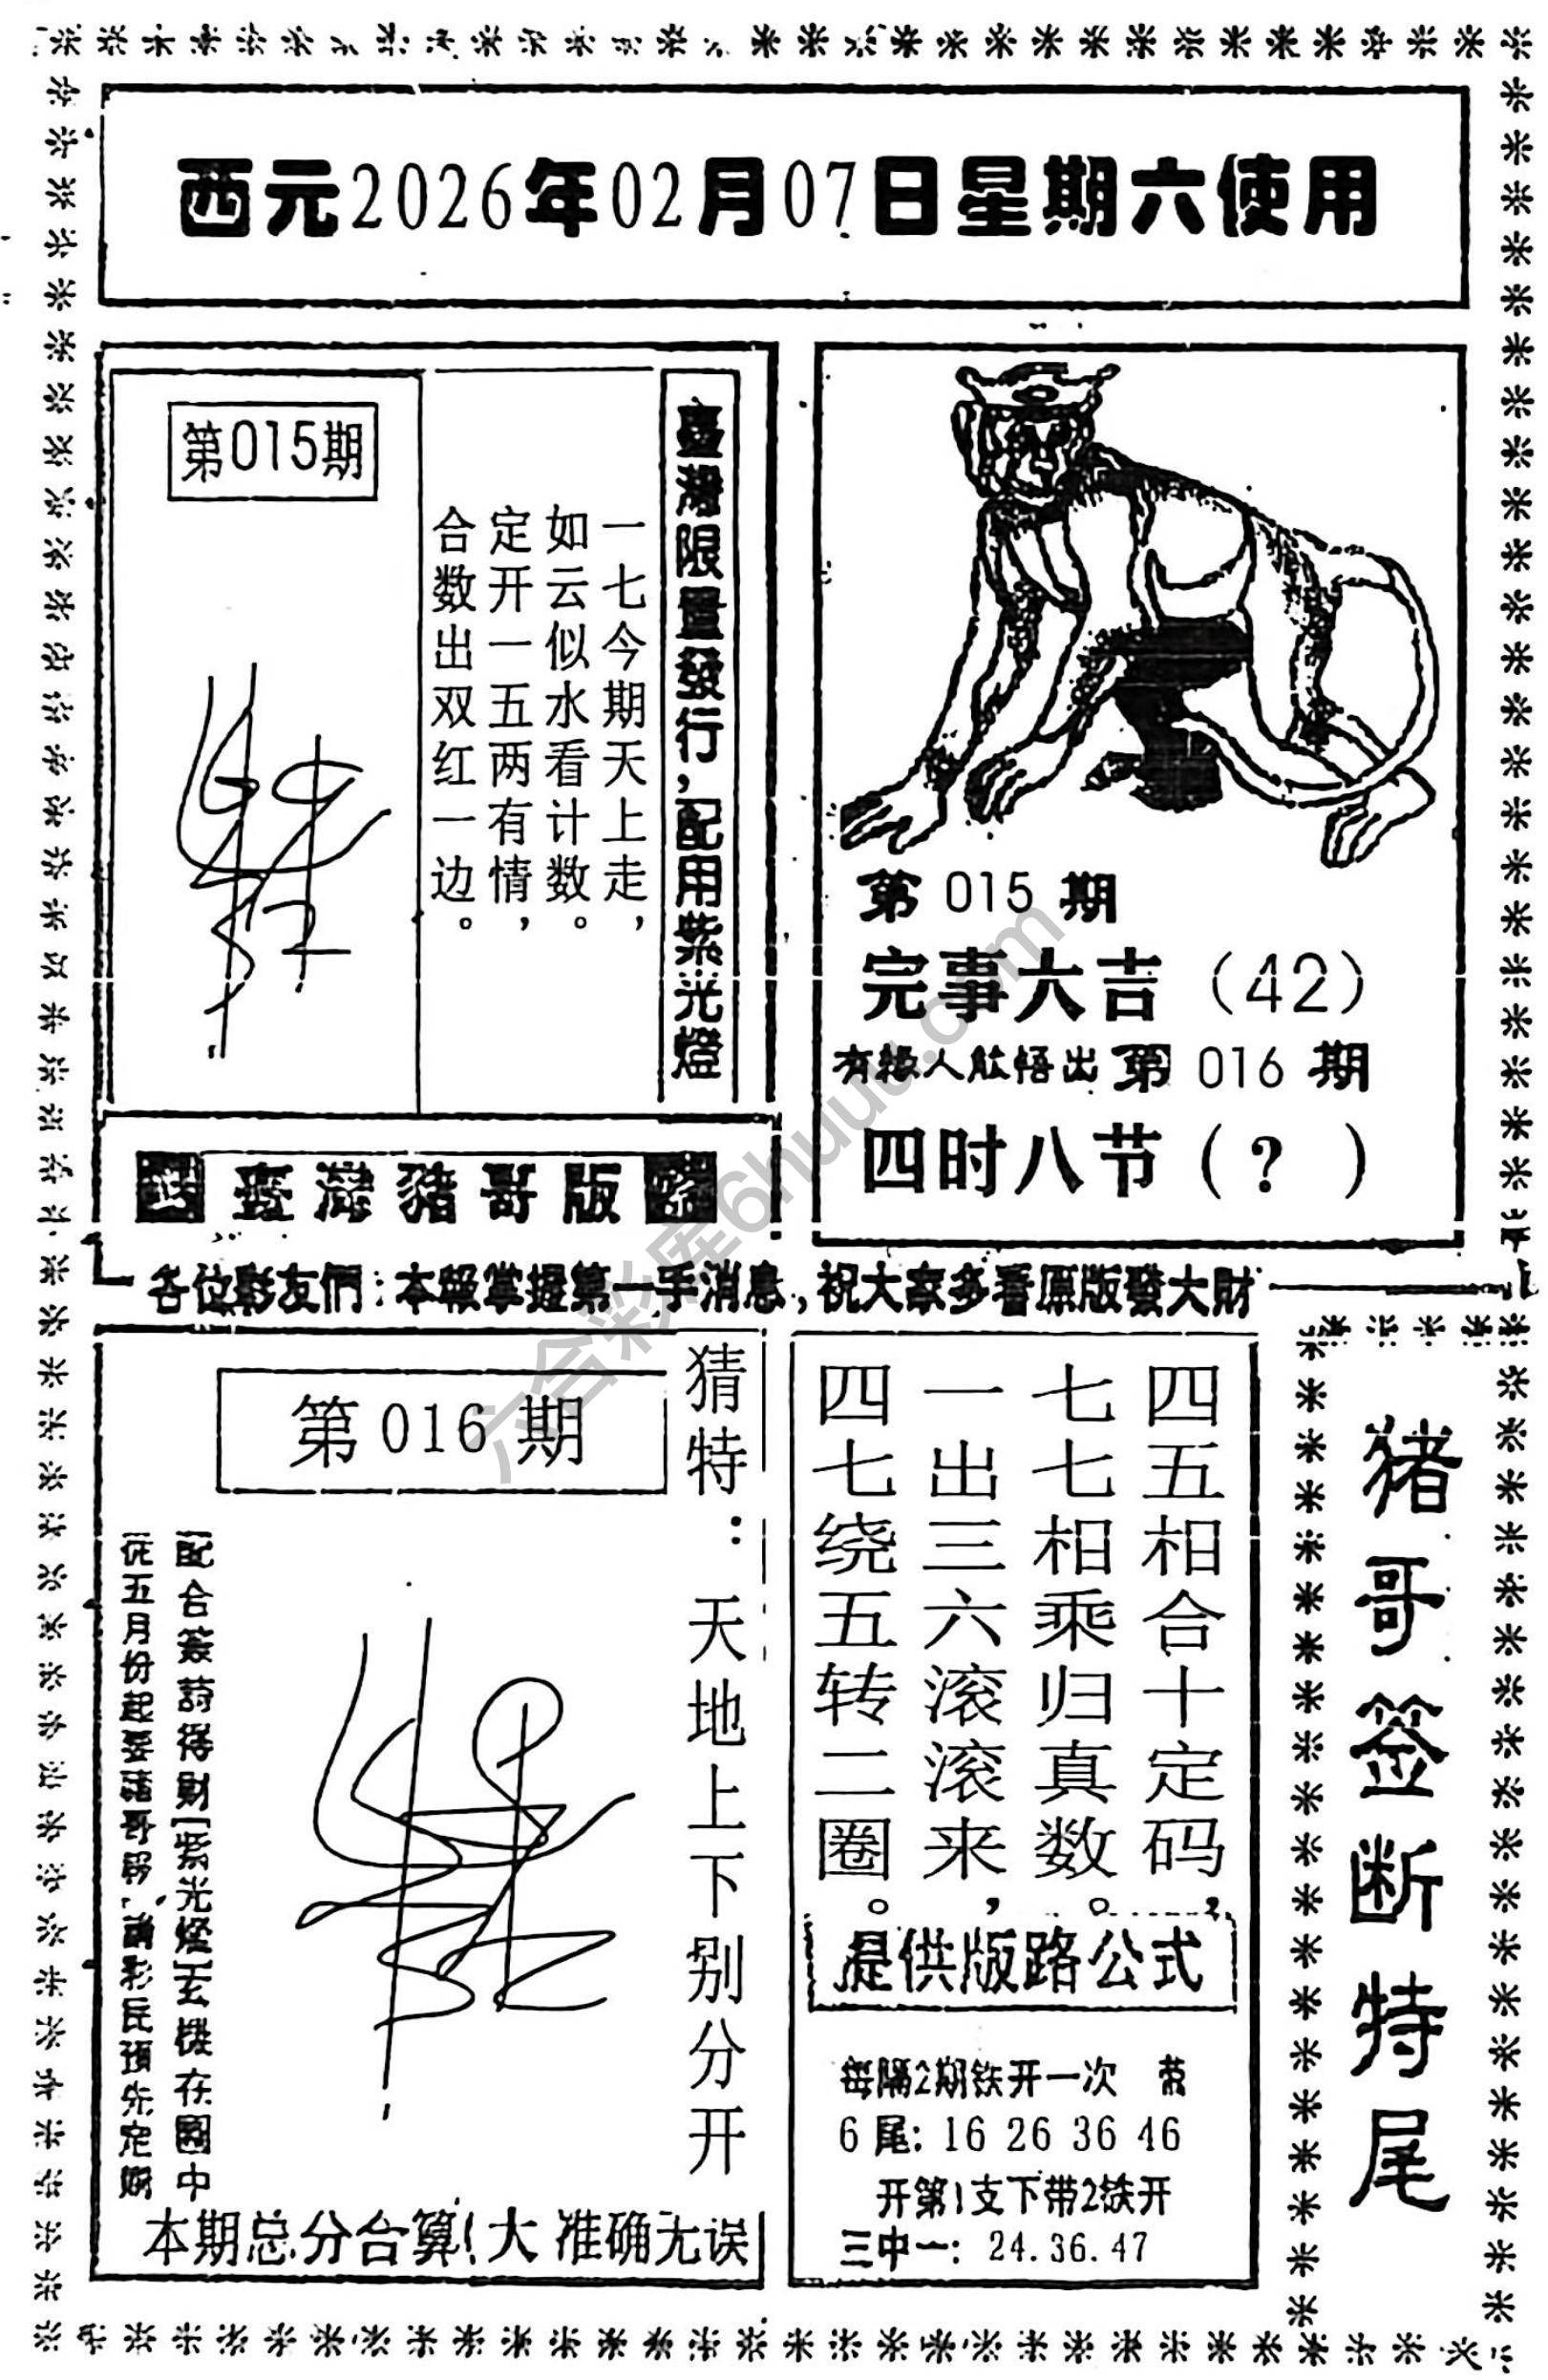 西元2026年02月07日星期六使用
第015期
臺灣限量發行，配用紫光燈
一七今期天上走，
如云似水看计数。
定开一五两有情，
合数出双红一边。
臺灣豬哥版
第 015 期
完事大吉（42）
有缘人能悟出第 016 期
四时八节（?）
各位彩友們：本報掌握第一手消息，祝大家多看原版發大財
第 016 期
猜特：天地上下别分开
配合簽詩得財[紫光燈]玄機在圖中
從五月份起要豬哥報，請彩民預先定购
本期总分合算！大 准确无误
四五相合十定码，
七七相乘归真数。
一出三六滚滚来，
四七绕五转二圈。
提供版路公式
每隔2期铁开一次 带
6尾：16 26 36 46
开第1支下带2铁开
三中一：24.36.47
猪哥签断特尾
六合彩库6huuu.com